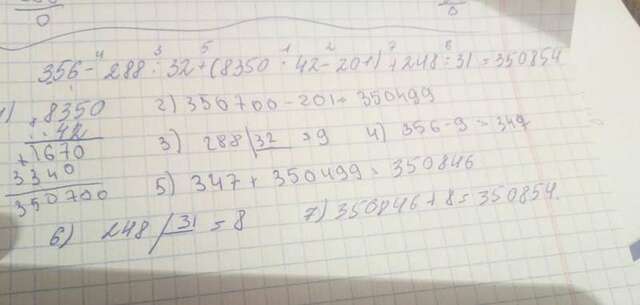 0
0
4 3 5 1 2 7 6
356 - 288 : 32 + (8350 · 42 - 201) + 248 : 31 = 350854
1) 8350
42
+ 1670
3340
350700
2) 350700 - 201 = 350499
3) 288 | 32 = 9
4) 356 - 9 = 347
5) 347 + 350499 = 350846
6) 248 | 31 = 8
7) 350846 + 8 = 350854.